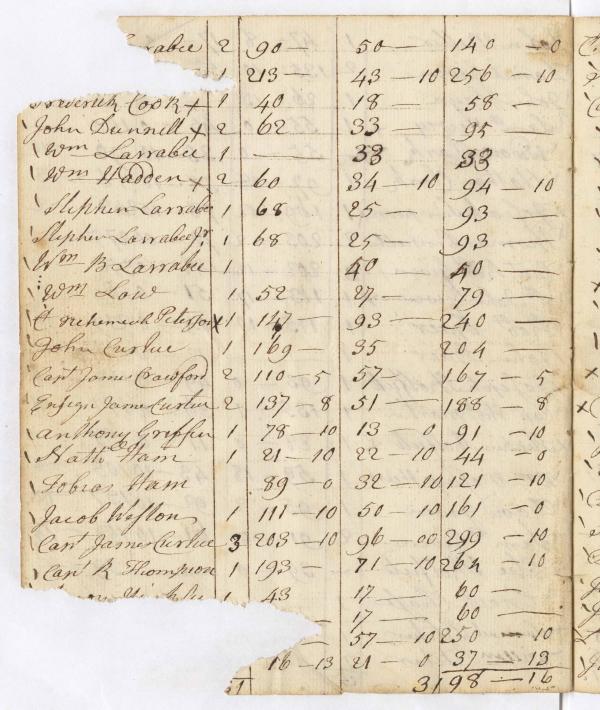 Larrabee 2 90 — 50 — 140 — 0
1 213 — 43 — 10 256 — 10
Frederick Cook x 1 40 18 — 58 —
John Dunnell x 2 62 33 — 95 —
Wm Larrabee 1 — 33 33
Wm Hadden x 2 60 34 — 10 94 — 10
Stephen Larrabe 1 68 25 — 93 —
Stephen Larrabee Jr. 1 68 25 — 93 —
Wm B Larrabee 1 40 — 40 —
Wm Low 1 52 27 — 79 —
Nehemiah Peterson x 1 147 — 93 — 240 —
John Curtice 1 169 — 35 204 —
Capt James Crawford 2 110 — 5 57 167 — 5
Ensign James Curtice 2 137 — 8 51 — 188 — 8
Anthony Griffin 1 78 — 10 13 — 0 91 — 10
Nath Ham 1 21 — 10 22 — 10 44 — 0
Tobias Ham 89 — 0 32 — 10 121 — 10
Jacob Weston 1 111 — 10 50 — 10 161 — 0
Capt James Curtice 3 203 — 10 96 — 00 299 — 10
Capt R Thompson 1 193 — 71 — 10 264 — 10
1 43 17 — 60 —
17 — 60 —
57 — 10 250 — 10
16 — 13 21 — 0 37 — 13
3198 — 16